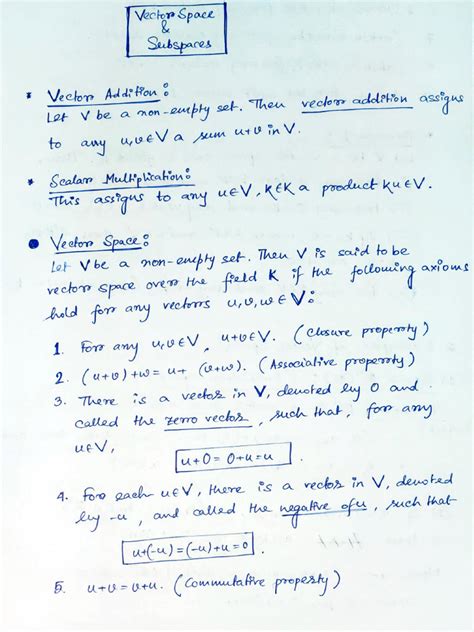 Vector Space
&
Subspaces
* Vector Addition:
Let V be a non-empty set. Then vector addition assigns
to any u,v∈V a sum u+v in V.
* Scalar Multiplication:
This assigns to any u∈V, k∈K a product ku∈V.
● Vector Space:
Let V be a non-empty set. Then V is said to be
vector space over the field K if the following axioms
hold for any vectors u,v,w∈V:
1. For any u,v∈V, u+v∈V. (Closure property)
2. (u+v)+w = u+ (v+w). (Associative property)
3. There is a vector in V, denoted by 0 and
called the zero vector, such that, for any
u∈V,
u+0 = 0+u = u
4. For each u∈V, there is a vector in V, denoted
by -u, and called the negative of u, such that
u+(-u) = (-u)+u = 0.
5. u+v = v+u. (Commutative property)